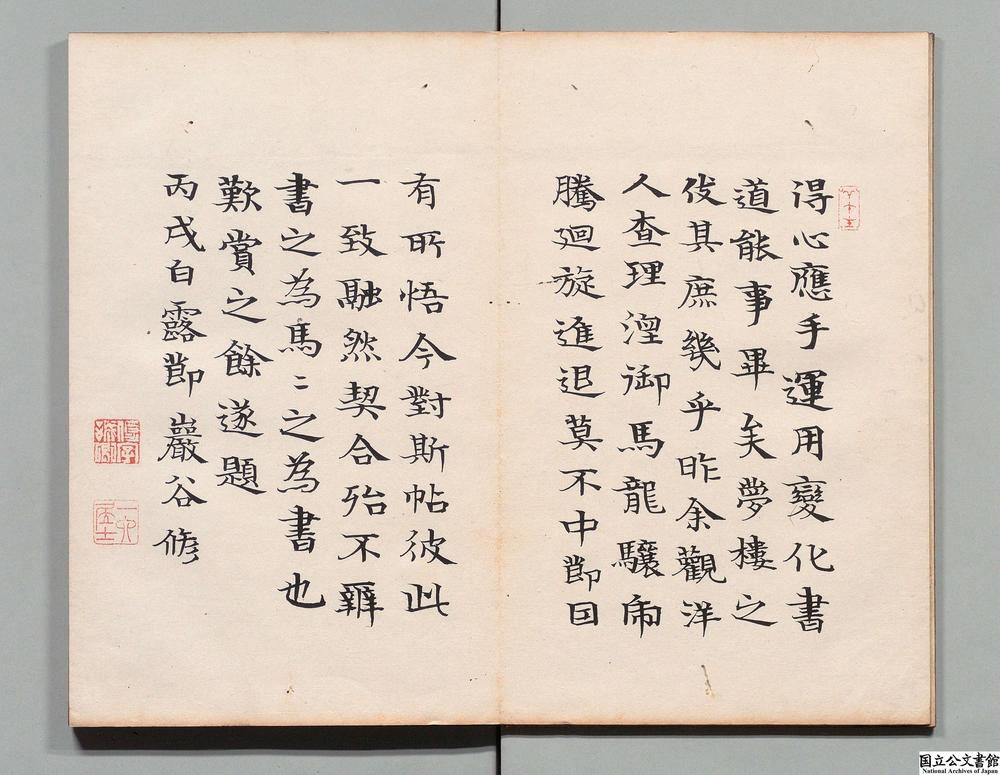 得心應手運用變化書
道能事畢矣夢樓之
伎其庶幾乎昨余觀洋
人查理涅御馬龍驤
騰廻旋進退莫不中節因
有所悟今對斯帖彼此
一致融然契合殆不辨
書之為馬〻之為書也
歎賞之餘遂題
丙戌白露節巖谷修
一六居士
国立公文書館
National Archives of Japan